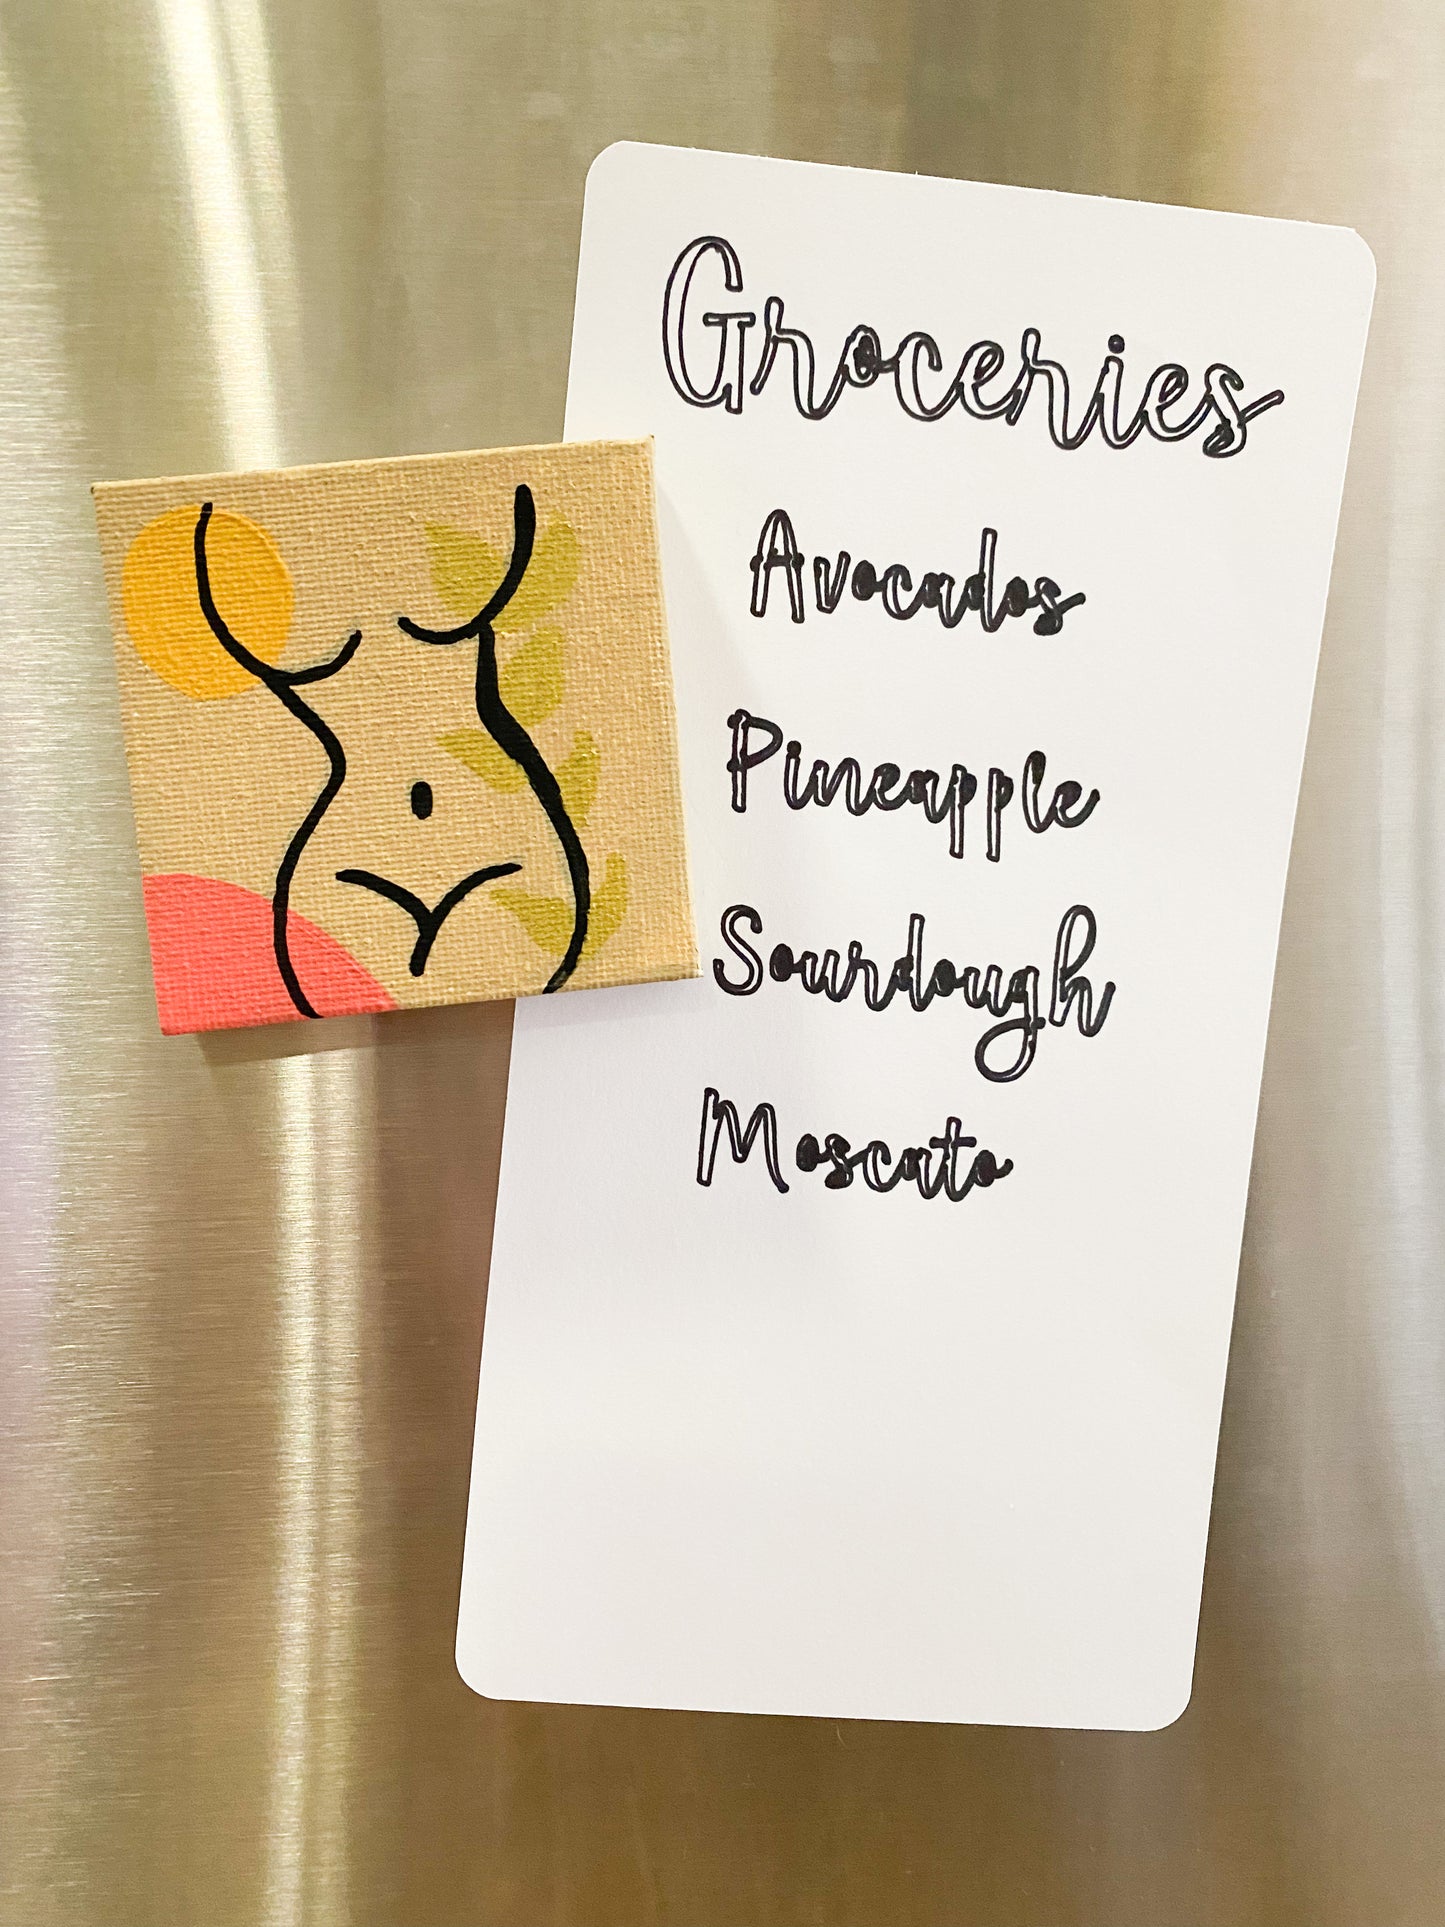 Groceries
Avocados
Pineapple
Sourdough
Moscato